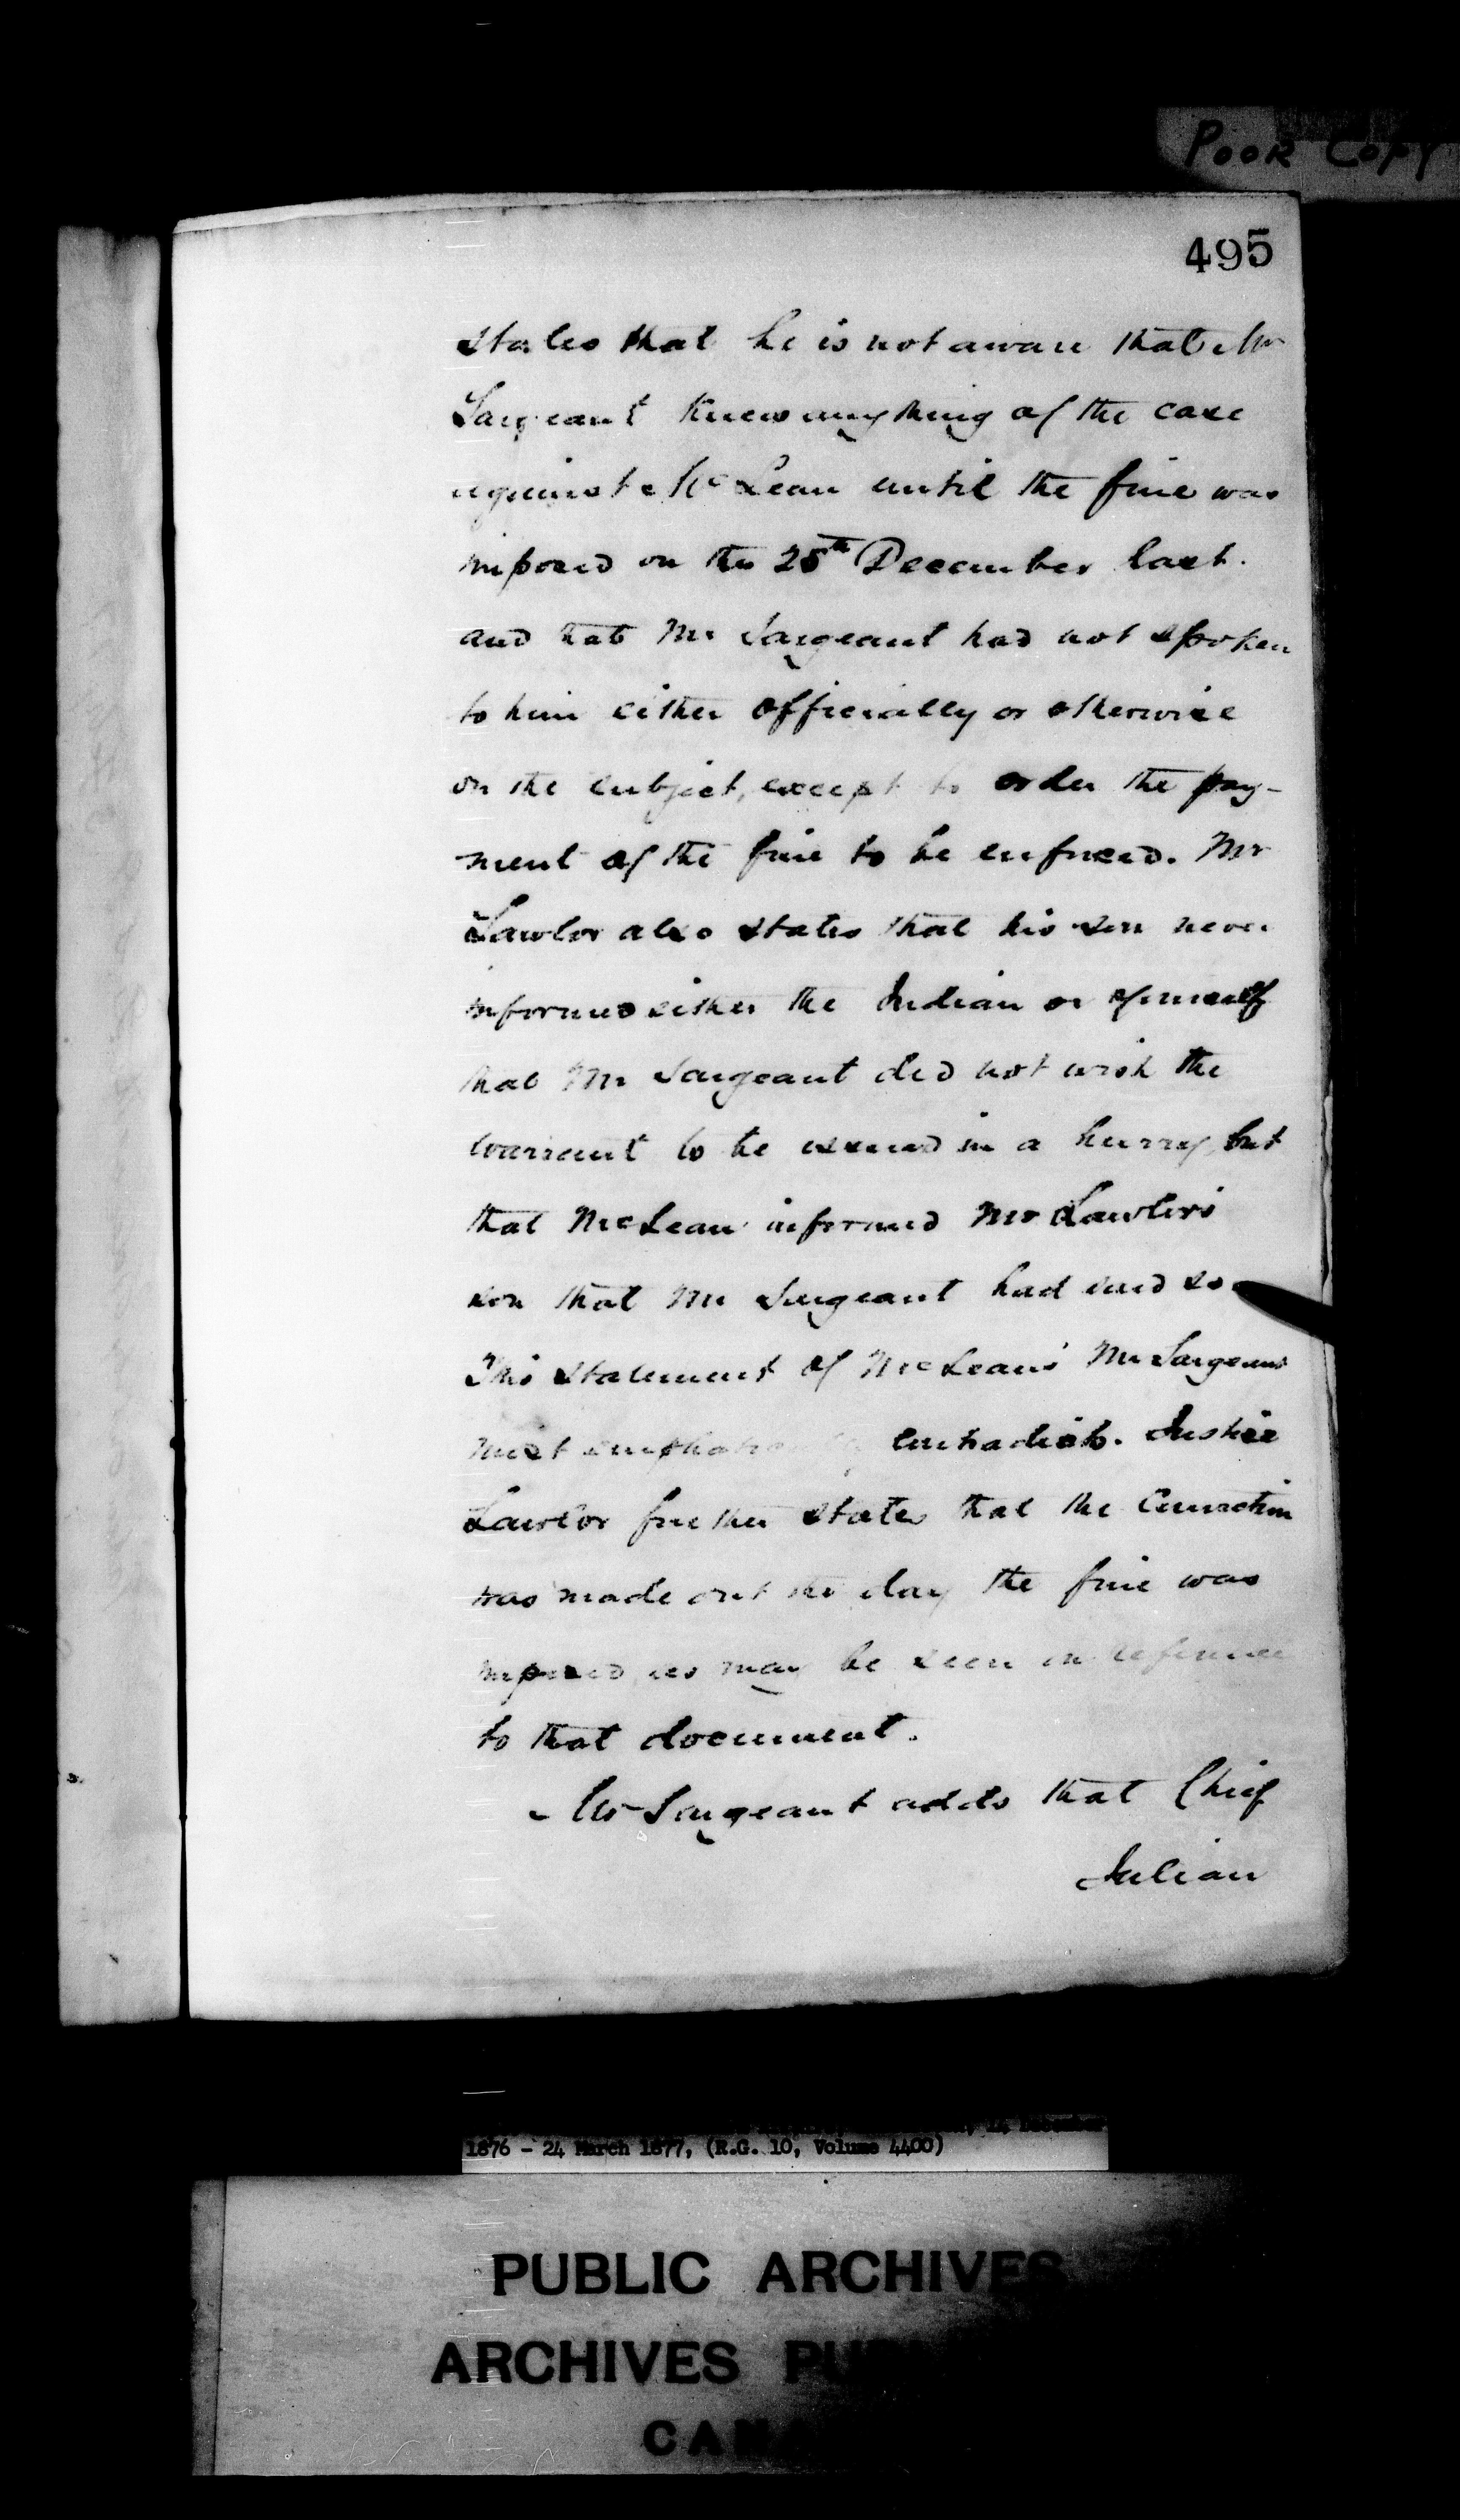 POOR COPY
495
states that he is not aware that Mr
Sargeant knew anything of the case
against McLean until the fine was
imposed on the 28th December last.
and that Mr Sargeant had not spoken
to him either officially or otherwise
on the subject, except to order the pay-
ment of the fine to be enforced. Mr
Lawlor also states that his son never
informed either the Indian or yourself
that Mr Sargeant did not wish the
warrant to be issued in a hurry, but
that McLean informed Mr Lawlor's
son that Mr Sargeant had said so
This statement of McLean's Mr Sargeant
most emphatically contradicts. Justice
Lawlor further states that the Conviction
was made out the day the fine was
imposed, as may be seen on reference
to that document.
Mr Sargeant adds that Chief
Julian
1876 - 24 March 1877, (R.G. 10, Volume 4400)
PUBLIC ARCHIVES
ARCHIVES PU
CANA